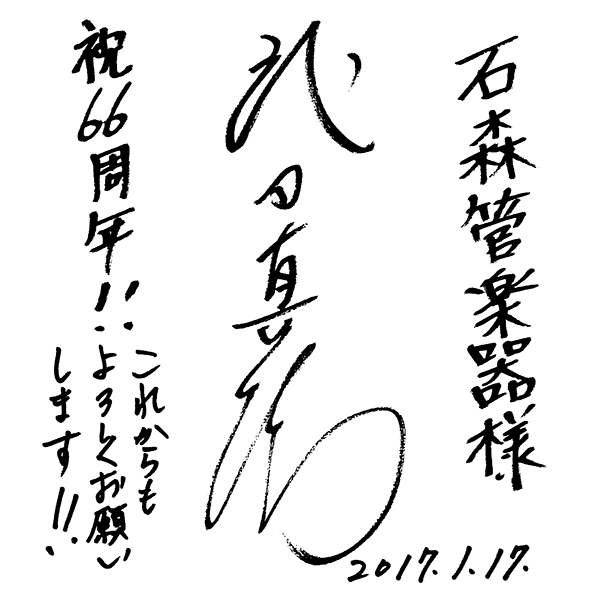 石森管楽器様
武田真治
祝66周年!!
これからも
よろしくお願い
します!!
2017.1.17.